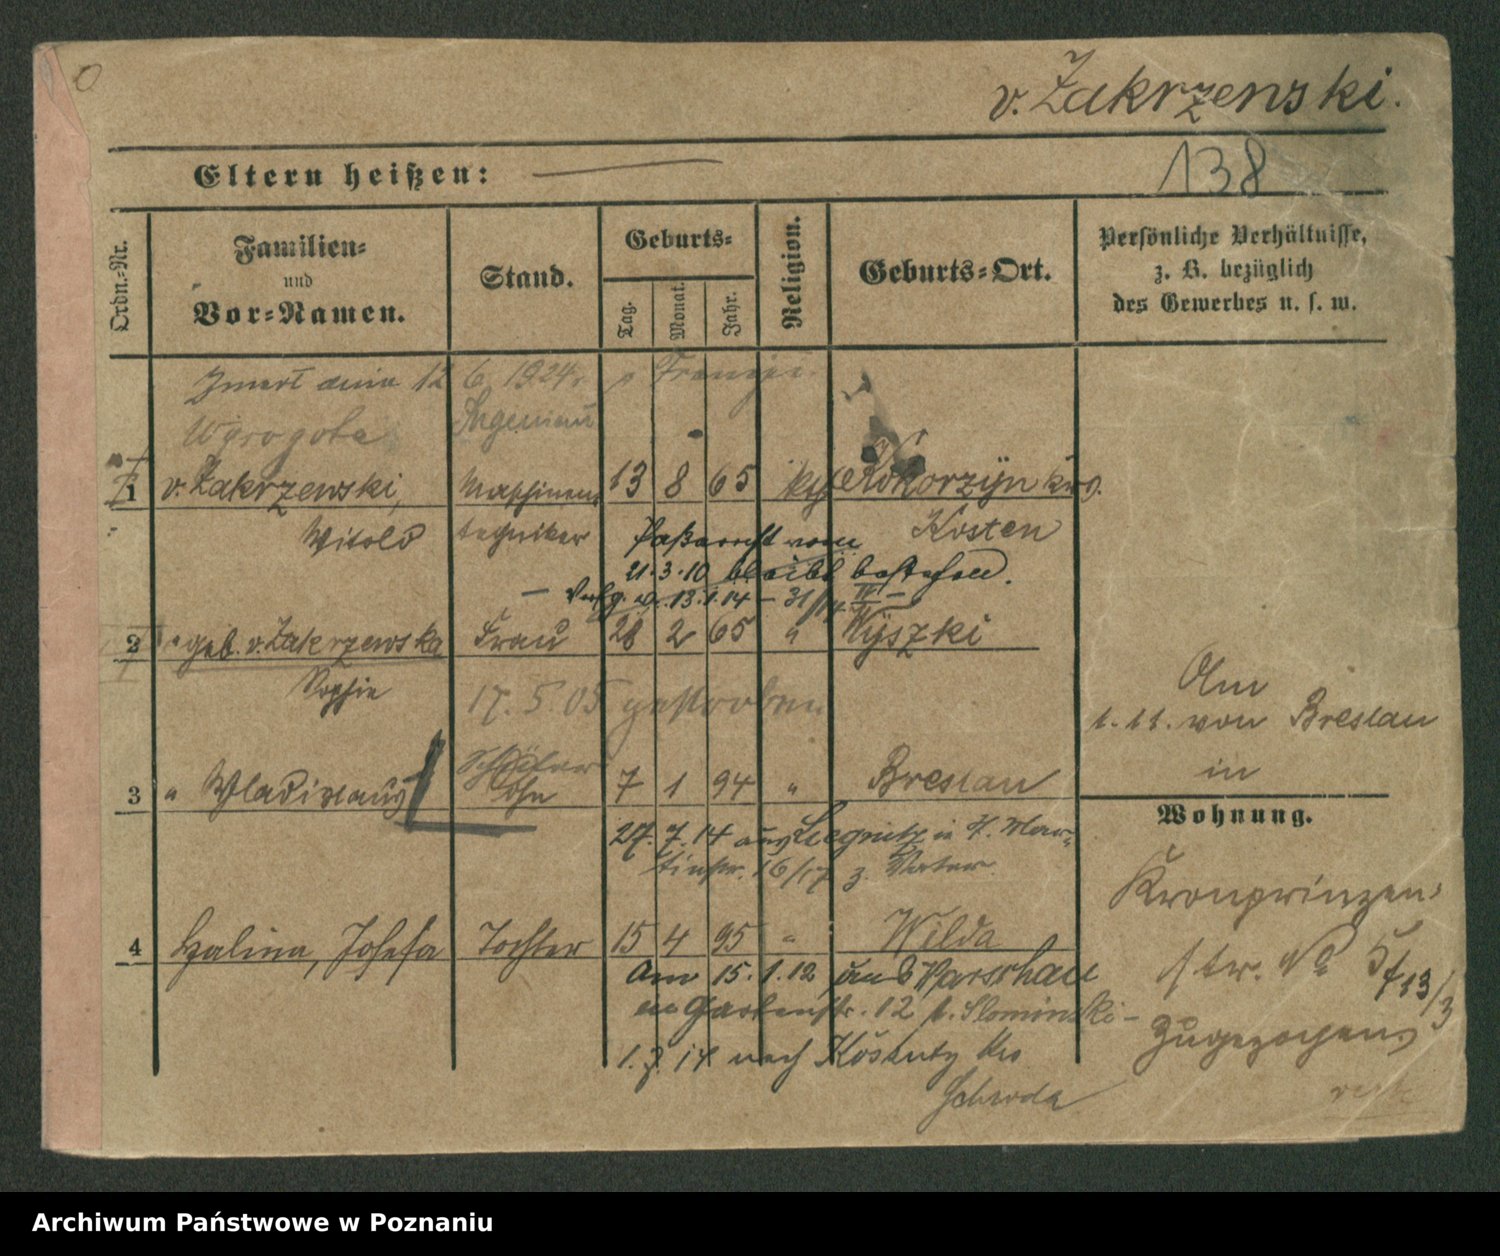 v. Zakrzewski.
138
Eltern heißen:
Ordn.-Nr.
Familien-
und
Vor-Namen.
Stand.
Geburts-
Tag.
Monat.
Jahr.
Religion.
Geburts-Ort.
Persönliche Verhältnisse,
z. B. bezüglich
des Gewerbes u. s. w.
Zmarł dnia 12 6. 1924r.
Ingenieur
1 v. Zakrzewski, Maschinen 13 8 65 Kokorzyn Krs.
Witold techniker Kosten
vom
21.3.10 bleibt bestehen.
Verfg. v. 13.1.14
2 " geb. v. Zakrzewska Frau 28 2 65 " Wyszki
Sophie
17. 5. 05 gestorben
Am
1. 11. von Breslau
in
Schüler
3 " Wladislaus Sohn 7 1 94 " Breslau
27. 7. 14 aus Liegnitz in H. Mar-
tinstr. 16/17 z. Vater.
Wohnung.
Kronprinzen-
str. No 5
zugezogen
4 Halina, Josefa Tochter 15 4 95 " Wilda
Am 15. 1. 12 aus Warschau
Gartenstr. 12 b. Slominski-
1. 7. 14 nach Krs
Schroda
Archiwum Państwowe w Poznaniu